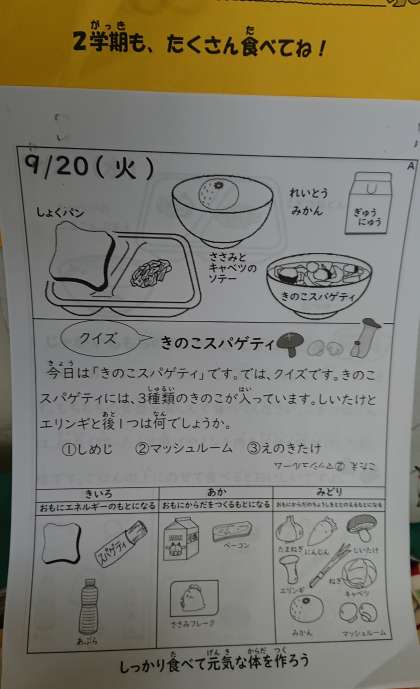 2学期も、たくさん食べてね！
がっき
た
9/20(火)
A
しょくパン
れいとう
みかん
ぎゅう
にゅう
ささみと
キャベツの
ソテー
きのこスパゲティ
クイズ
きのこスパゲティ
きょう
今日は「きのこスパゲティ」です。では、クイズです。きのこ
しゅるい
はい
スパゲティには、3種類のきのこが入っています。しいたけと
あと
なん
エリンギと後1つは何でしょうか。
①しめじ ②マッシュルーム ③えのきたけ
こたえ ②マッシュルーム
きいろ
あか
みどり
おもにエネルギーのもとになる
おもにからだをつくるもとになる
おもにからだのちょうしをととのえるもとになる
スパゲティ
あぶら
ベーコン
ささみフレーク
たまねぎ
にんじん
しいたけ
エリンギ
ねぎ
キャベツ
みかん
マッシュルーム
た
げんき
からだ
つく
しっかり食べて元気な体を作ろう